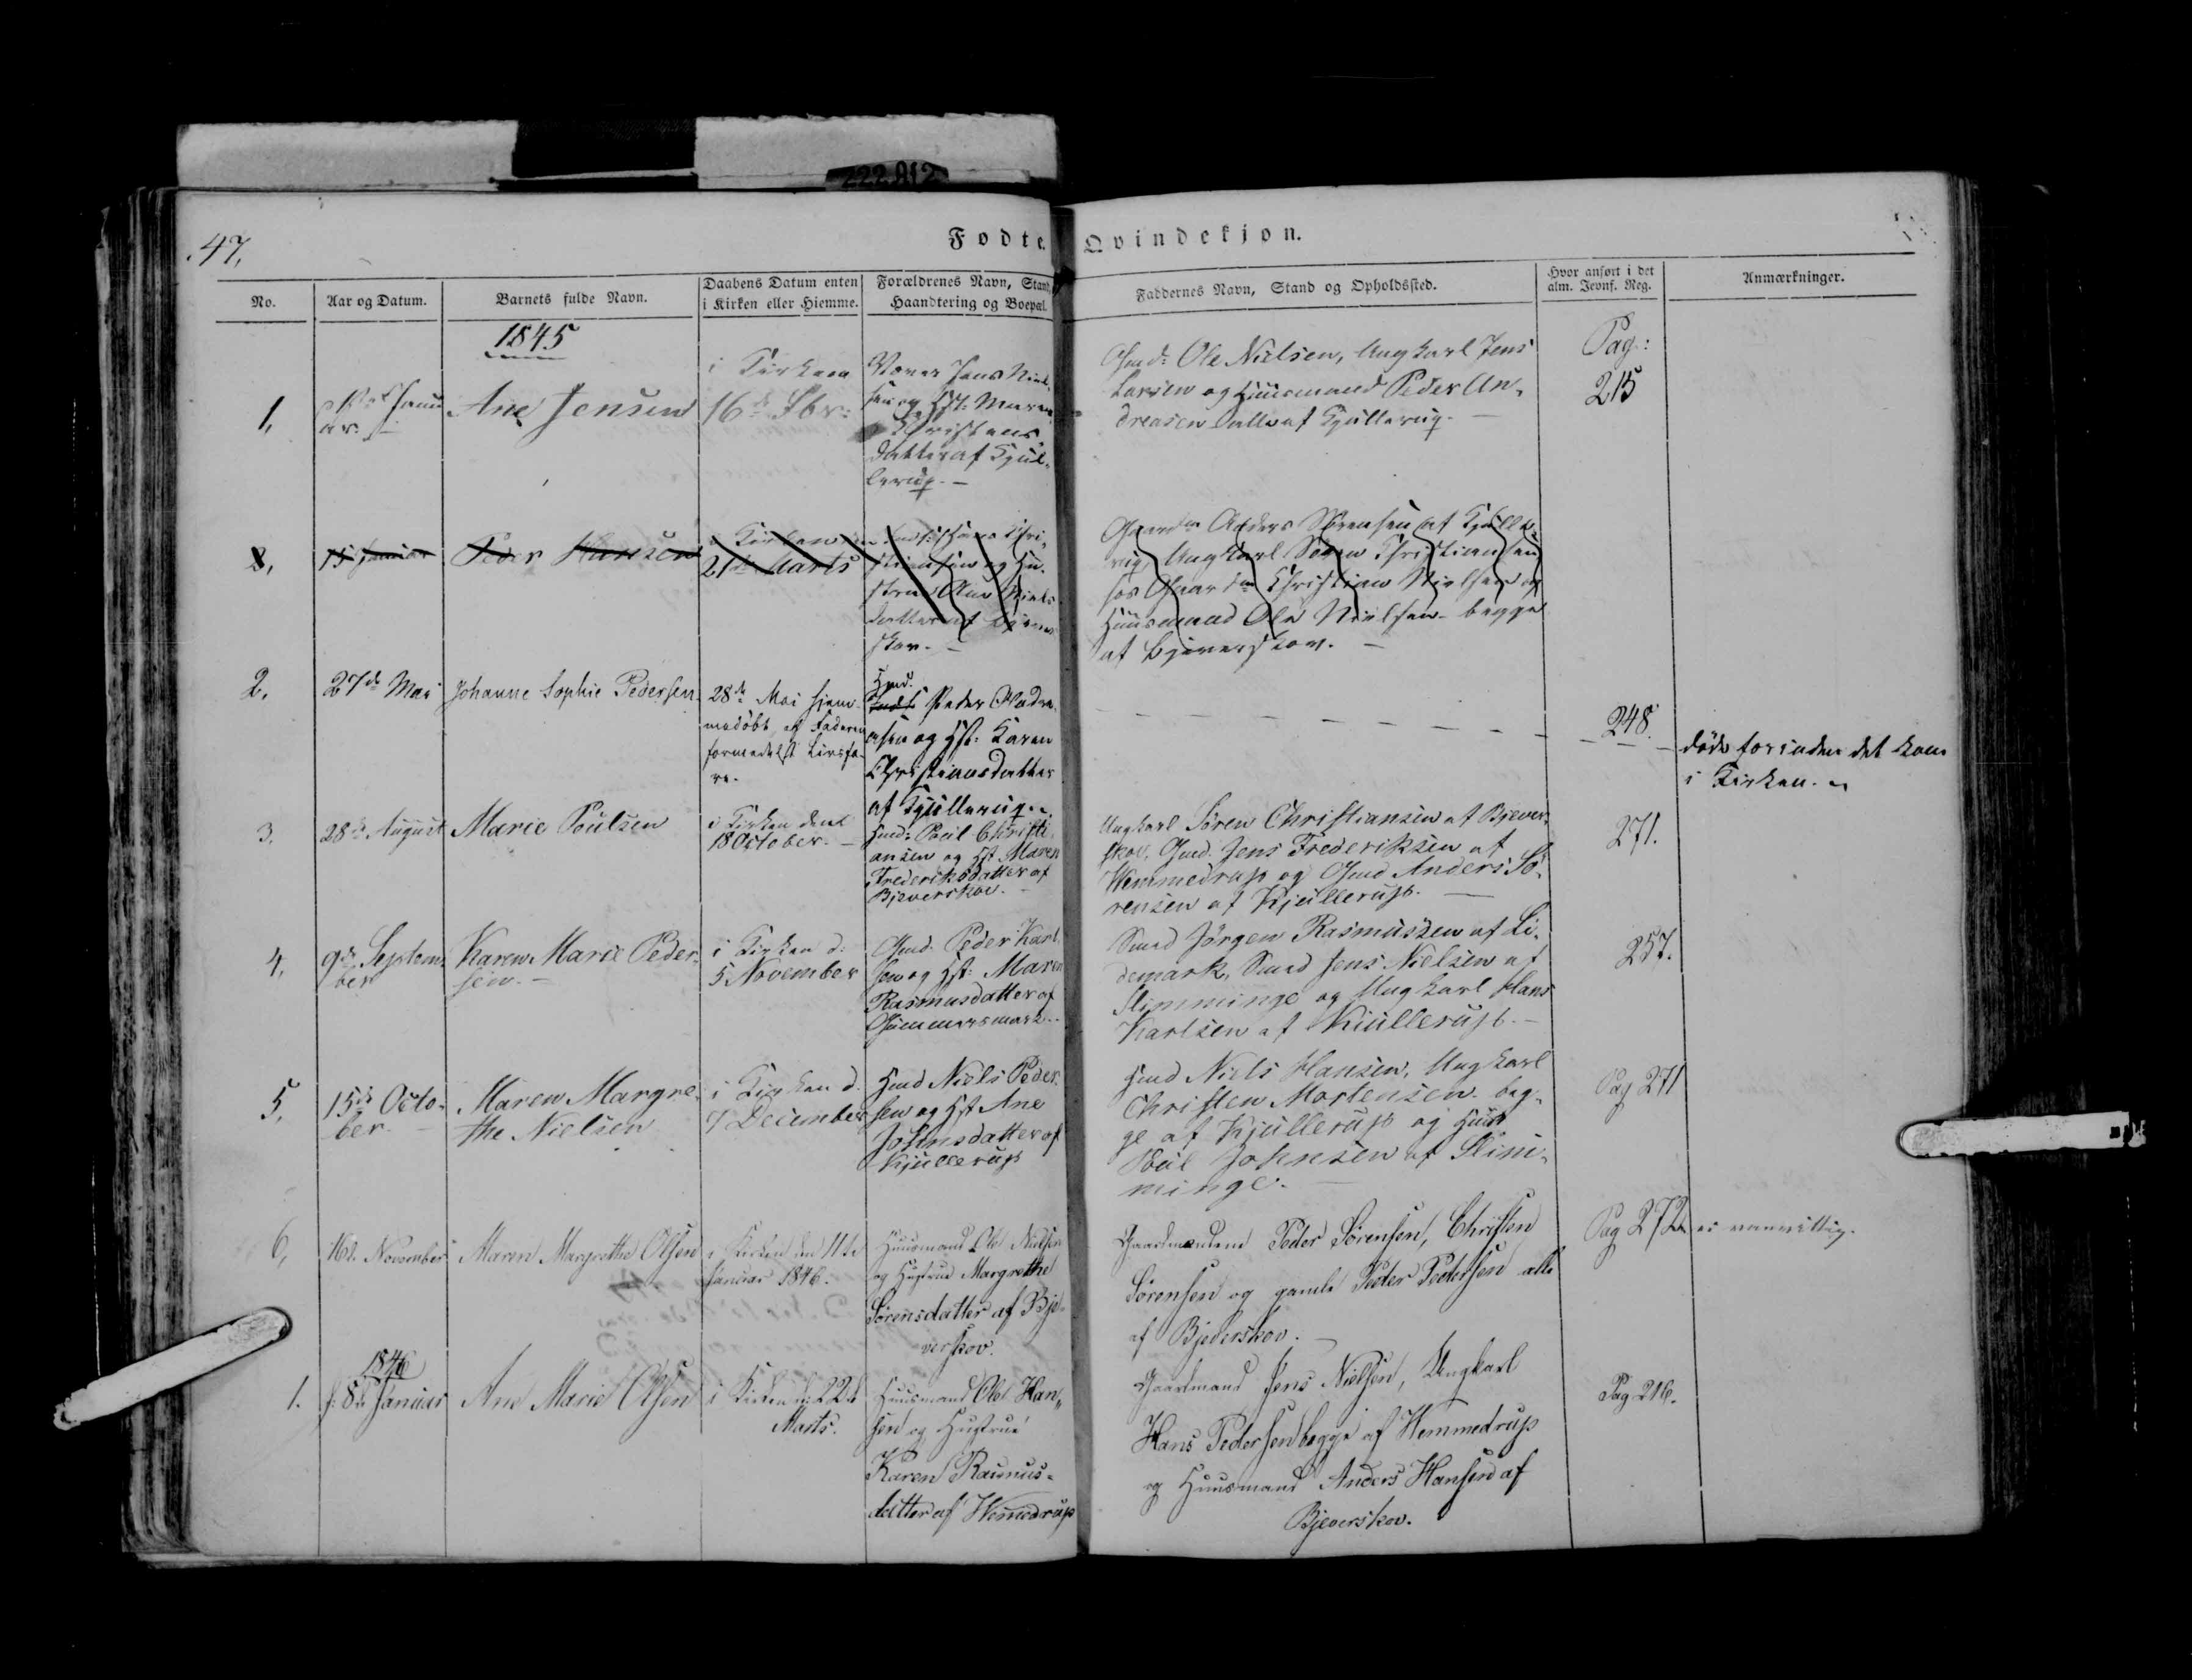 222.812
47.
Fødte. Qvindekjøn.
No.
Aar og Datum.
Barnets fulde Navn.
Daabens Datum enten
i Kirken eller Hiemme.
Forældrenes Navn, Stand,
Haandtering og Boepæl.
Faddernes Navn, Stand og Opholdssted.
Hvor anført i det
alm. Jevnf. Reg.
Anmærkninger.
1845
1,
Ane Jensen
i Kirken
16de
Jens Niel-
sen og Hst: Maren
Christens
datter af Kjul-
lerup. –
Gmd: Ole Nielsen, Ungkarl Jens
Larsen og Huusmand Peder An-
dreasen alle af Kjullerup. –
Pag:
215
15 Januar
Peder Hansen
i Kirken
21de Marts
Hans Chri-
stiansen og Hu-
stru Ane Niels
datter af Bjever
skov. –
Gaardm Anders Sørensen af Kjulle-
rup, Ungkarl Søren Christiansen
hos Gaardm Christian Nielsen og
Huusmand Ole Nielsen – begge
af Bjeverskov. –
2,
27de Mai
Johanne Sophie Pedersen
28de Mai hjem-
medøbt af Faderen
formedelst Livsfa-
re.
Hmd.
Peder Andre-
asen og Hst: Karen
Christiansdatter
af Kjullerup.
248.
døde forinden det kom
i Kirken.
3,
28de August
Marie Poulsen
i Kirken den
18 October. –
Hmd: Poul Christi-
ansen og Hst Maren
Frederiksdatter af
Bjeverskov. –
Ungkarl Søren Christiansen af Bjever-
skov, Gmd. Jens Frederiksen af
Wemmedrup og Gmd Anders Sø-
rensen af Kjullerup. –
271.
4,
9de Septem-
ber
Karen Marie Peder-
sen. –
i Kirken d:
5 November
Gmd. Peder Karl-
sen og Hst: Maren
Rasmusdatter af
Gummersmark. –
Smed Jörgen Rasmussen af Li-
demark, Smed Jens Nielsen af
Slimminge og Ungkarl Hans
Karlsen af Kiullerup. –
257.
5,
15de Octo-
ber. –
Maren Margre-
the Nielsen
i Kirken d.
7 December
Hmd Niels Peder-
sen og Hst Ane
Johnsdatter af
Kjullerup
Hmd Niels Hansen, Ungkarl
Christen Mortensen – beg-
ge af Kjullerup og Hmd
Poul Johnsen af Slim-
minge. –
Pag 271
6,
16d. November
Maren Margrethe Olsen
i Kirken den 11te
Januar 1846.
Huusmand Ole Nielsen
og Hustrue Margrethe
Sørensdatter af Bje-
verskov.
Gaardmændene Peder Sørensen, Christen
Sørensen og gamle Peder Pedersen alle
af Bjeverskov. –
Pag 272.
1846
1.
f: 8de Januar
Ane Marie Olsen
i Kirken d: 22d
Marts.
Huusmand Ole Han-
sen og Hustrue
Karen Rasmus-
datter af Wemedrup
Gaardmand Jens Nielsen, Ungkarl
Hans Pedersen begge af Wemmedrup
og Huusmand Anders Hansen af
Bjeverskov.
Pag 216.